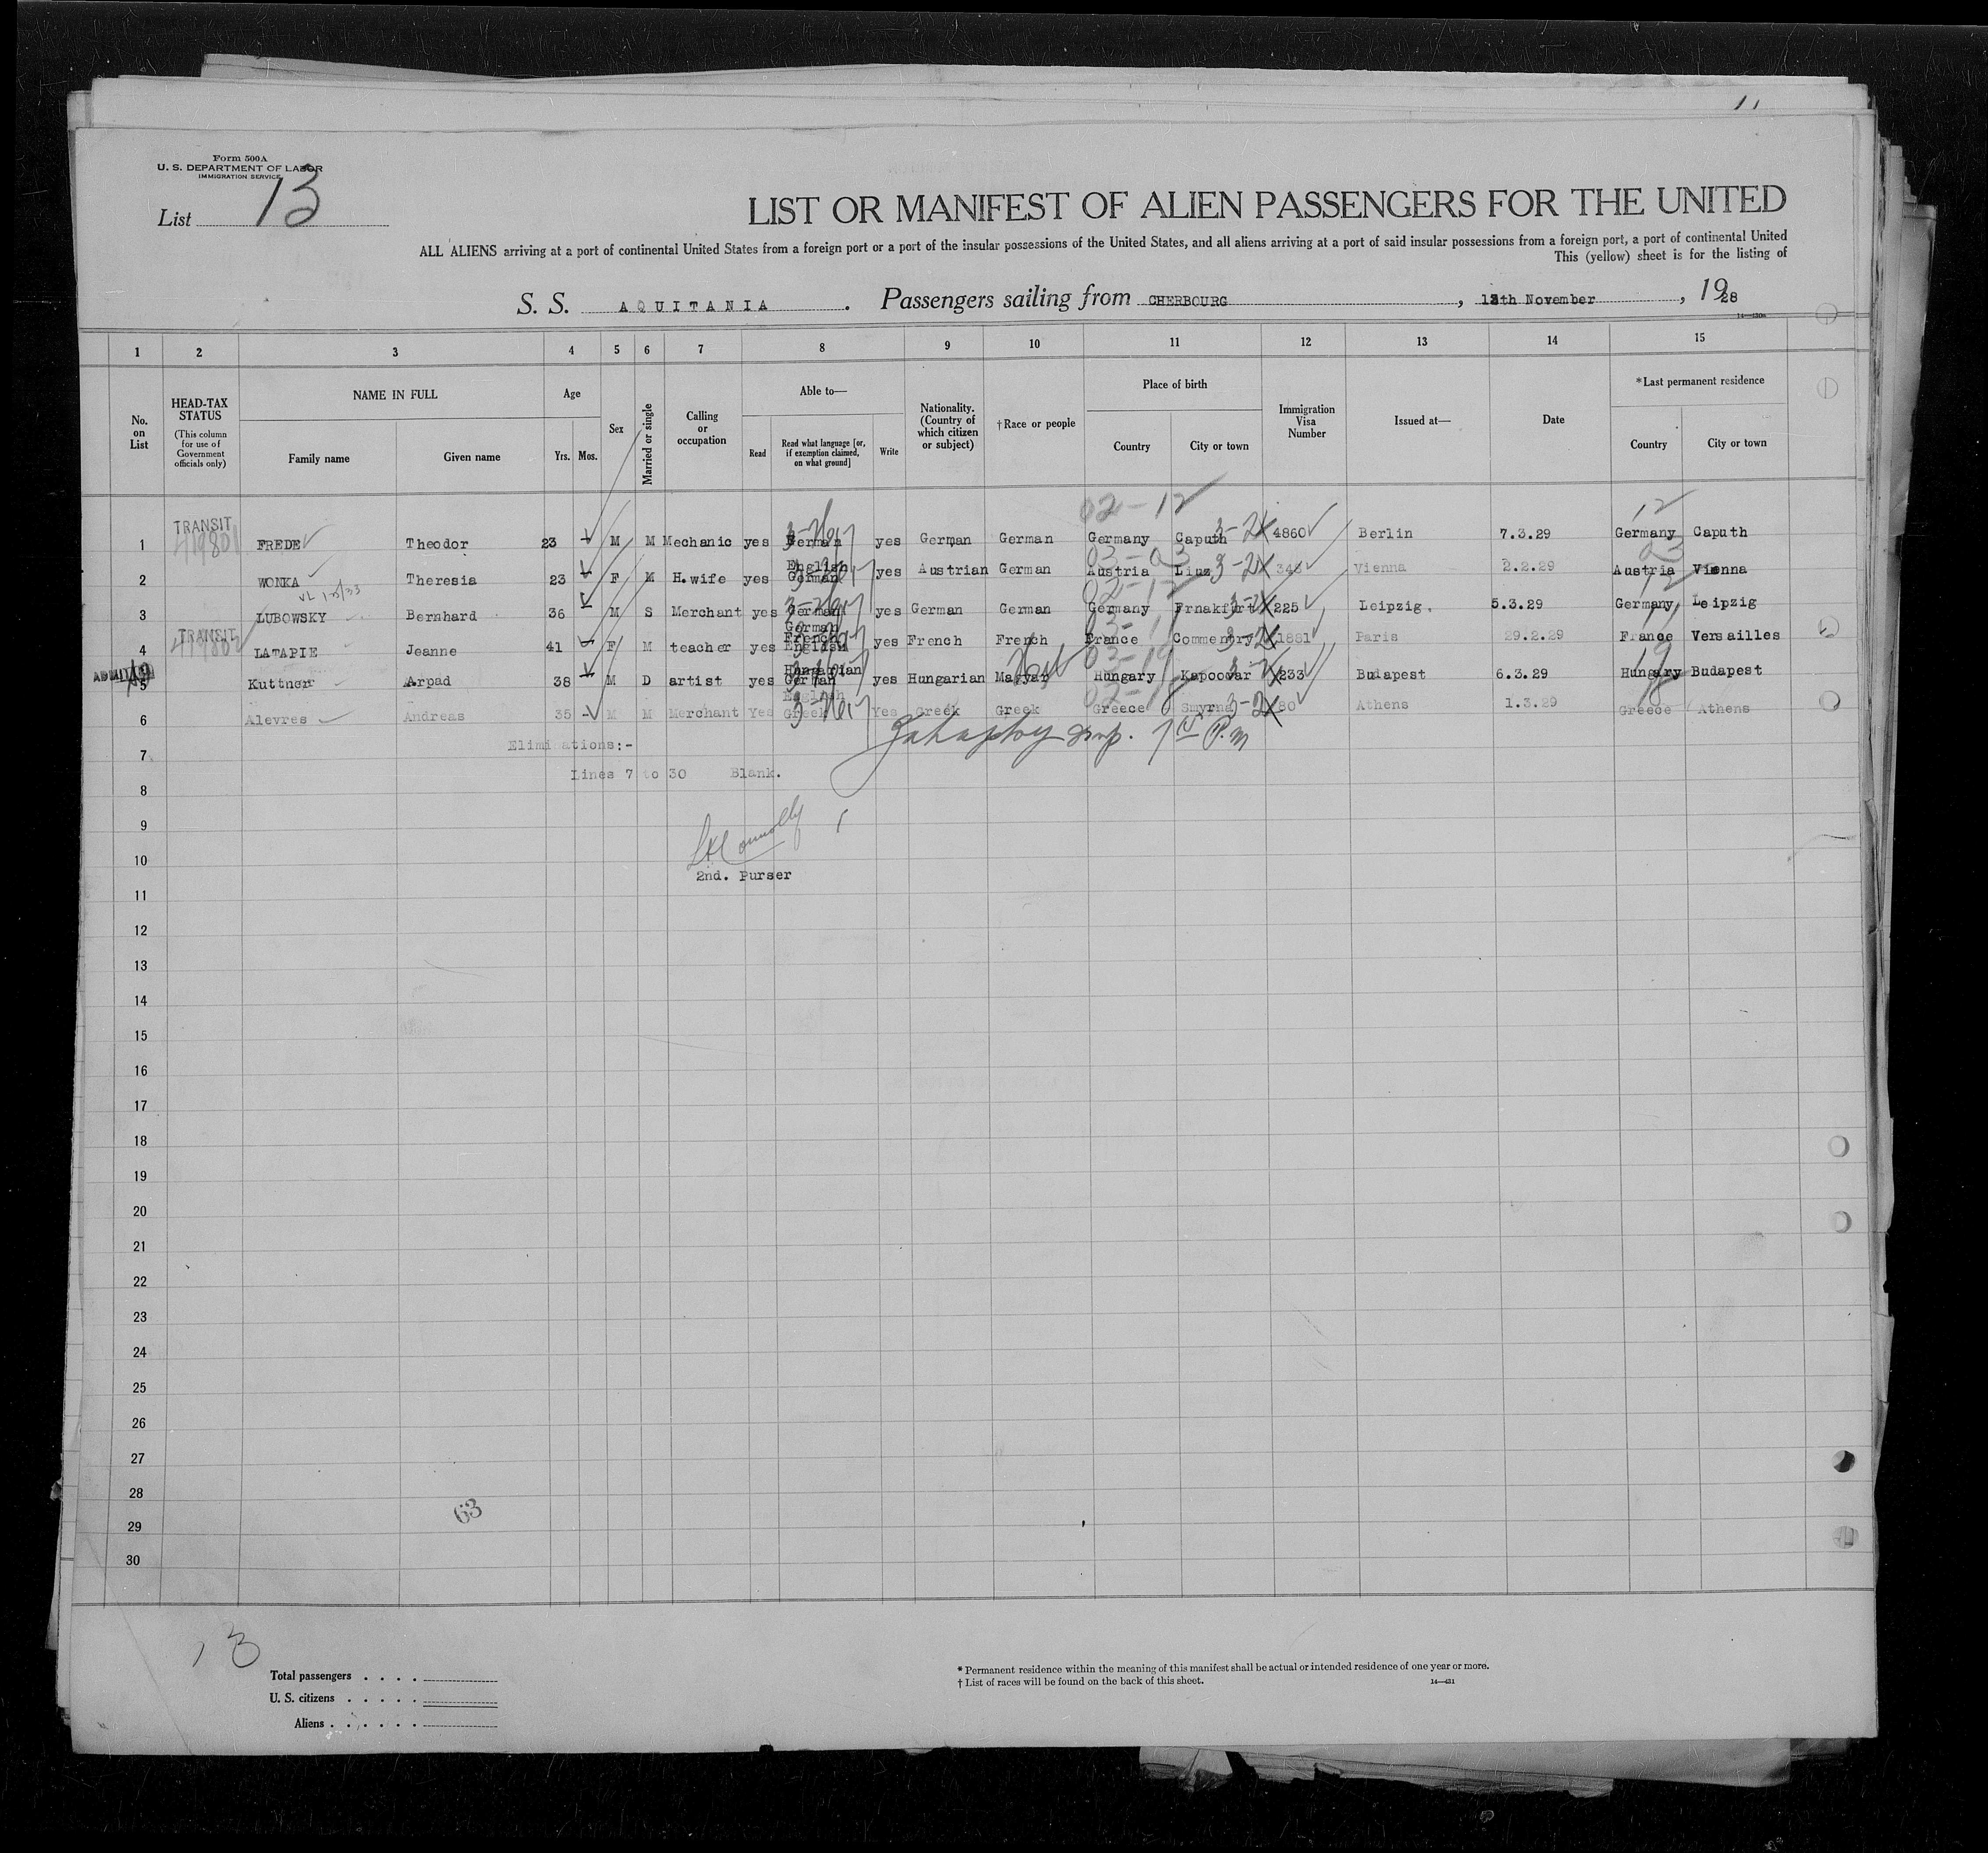 Form 500A
U. S. DEPARTMENT OF LABOR
IMMIGRATION SERVICE
List 13
LIST OR MANIFEST OF ALIEN PASSENGERS FOR THE UNITED
ALL ALIENS arriving at a port of continental United States from a foreign port or a port of the insular possessions of the United States, and all aliens arriving at a port of said insular possessions from a foreign port, a port of continental United
This (yellow) sheet is for the listing of
S. S. AQUITANIA. Passengers sailing from CHERBOURG, November, 1928
14—430a
1 2 3 4 5 6 7 8 9 10 11 12 13 14 15
No. on List
HEAD-TAX STATUS (This column for use of Government officials only)
NAME IN FULL
Family name Given name
Age
Yrs. Mos.
Sex
Married or single
Calling or occupation
Able to—
Read
Read what language [or, if exemption claimed, on what ground]
Write
Nationality. (Country of which citizen or subject)
†Race or people
Place of birth
Country City or town
Immigration Visa Number
Issued at—
Date
*Last permanent residence
Country City or town
02-12 12
TRANSIT
1 FREDE Theodor 23 M M Mechanic yes German yes German German Germany Caputh 3-2X 4860 Berlin 7.3.29 Germany Caputh
2 WONKA Theresia 23 F M H.wife yes English German yes Austrian German Austria Linz 3-2X 348 Vienna 2.2.29 Austria Vienna
3 LUBOWSKY Bernhard 36 M S Merchant yes German yes German German Germany Frnakfurt 225 Leipzig. 5.3.29 Germany Leipzig
TRANSIT
4 LATAPIE Jeanne 41 F M teacher yes German French English yes French French France Commentry 1881 Paris 29.2.29 France Versailles
ADMITTED
5 Kuttner Arpad 38 M D artist yes Hungarian German yes Hungarian Magyar Hungary Kapocvar 233 Budapest 6.3.29 Hungary Budapest
6 Alevres Andreas 35 - M M Merchant Yes English Greek Yes Greek Greek Greece Smyrna 3-2X 80 Athens 1.3.29 Greece Athens
7 Eliminations:-
Lines 7 to 30 Blank.
8
9
10
2nd. Purser
11
12
13
14
15
16
17
18
19
20
21
22
23
24
25
26
27
28
63
29
30
13
Total passengers . . . .
U. S. citizens . . . . .
Aliens . . . . . .
* Permanent residence within the meaning of this manifest shall be actual or intended residence of one year or more.
† List of races will be found on the back of this sheet.
14—431